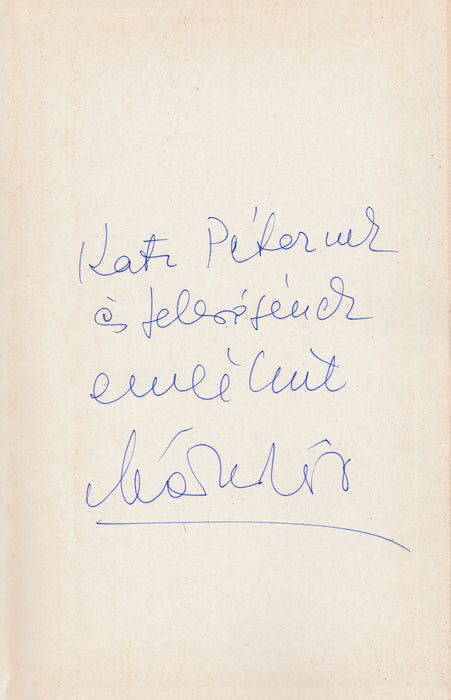 Katz Péternek
és feleségének
emlékül